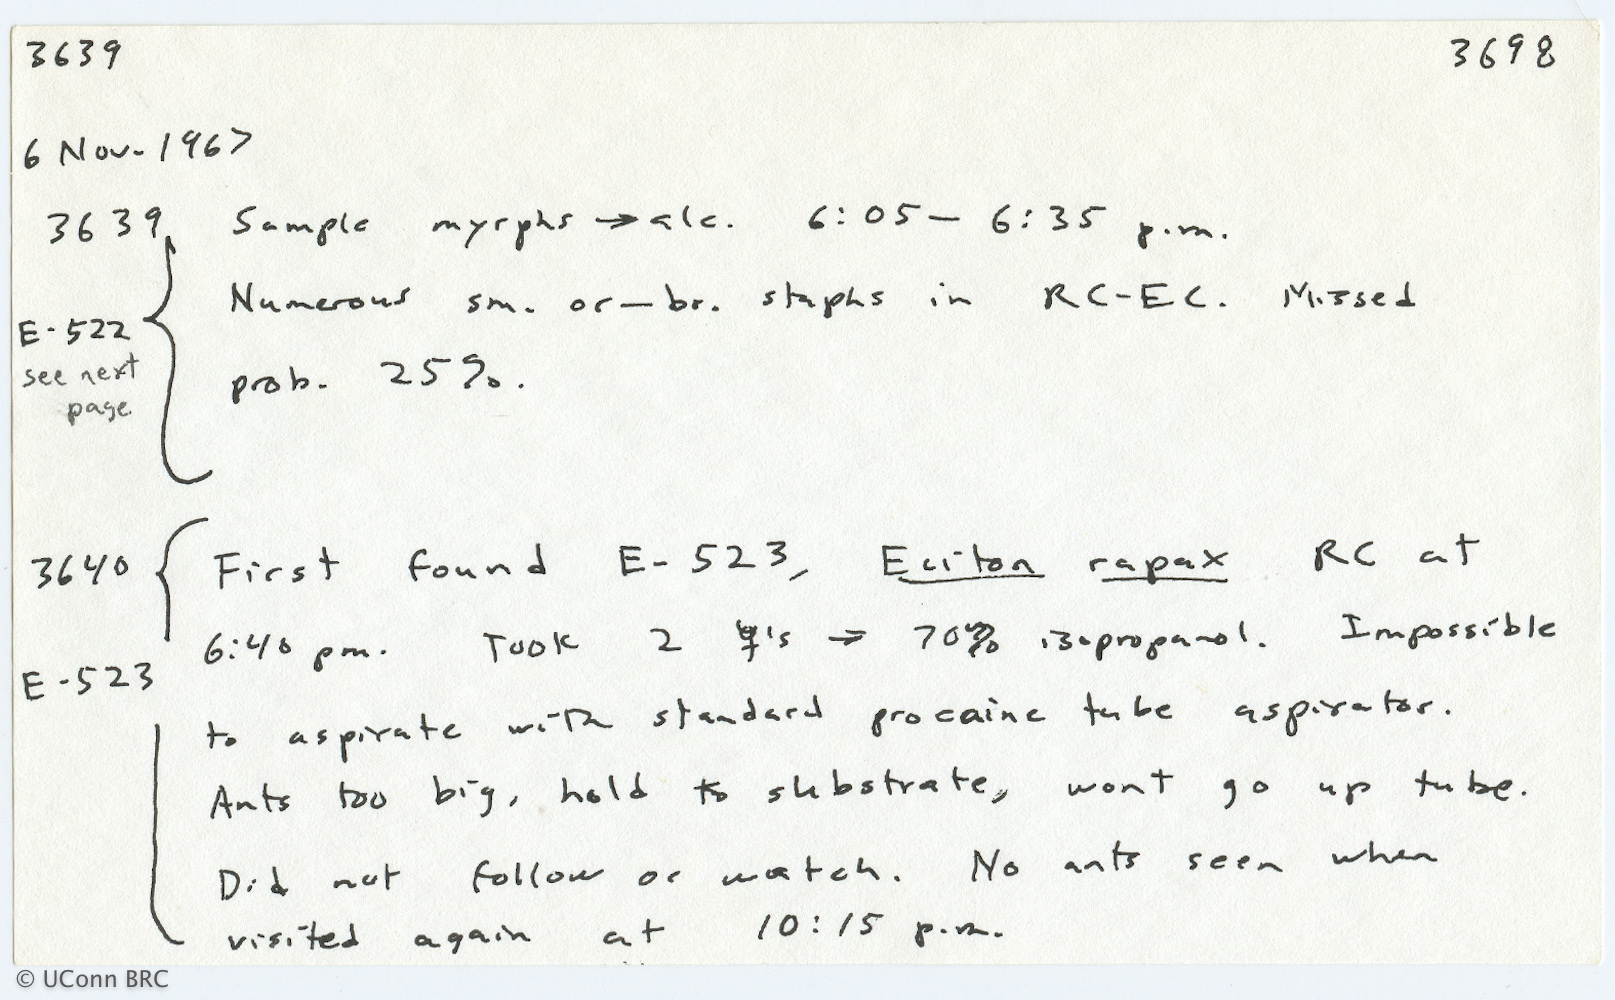 3639 3698
6 Nov. 1967
3639 Sample myrphs → alc. 6:05 — 6:35 p.m.
Numerous sm. or—br. staphs in RC-EC. Missed
E-522
see next
page
prob. 25%.
3640 First found E-523, Eciton rapax RC at
6:40 pm. Took 2 ☿'s → 70% isopropanol. Impossible
E-523
to aspirate with standard procaine tube aspirator.
Ants too big, hold to substrate, wont go up tube.
Did not follow or watch. No ants seen when
visited again at 10:15 p.m.
© UConn BRC